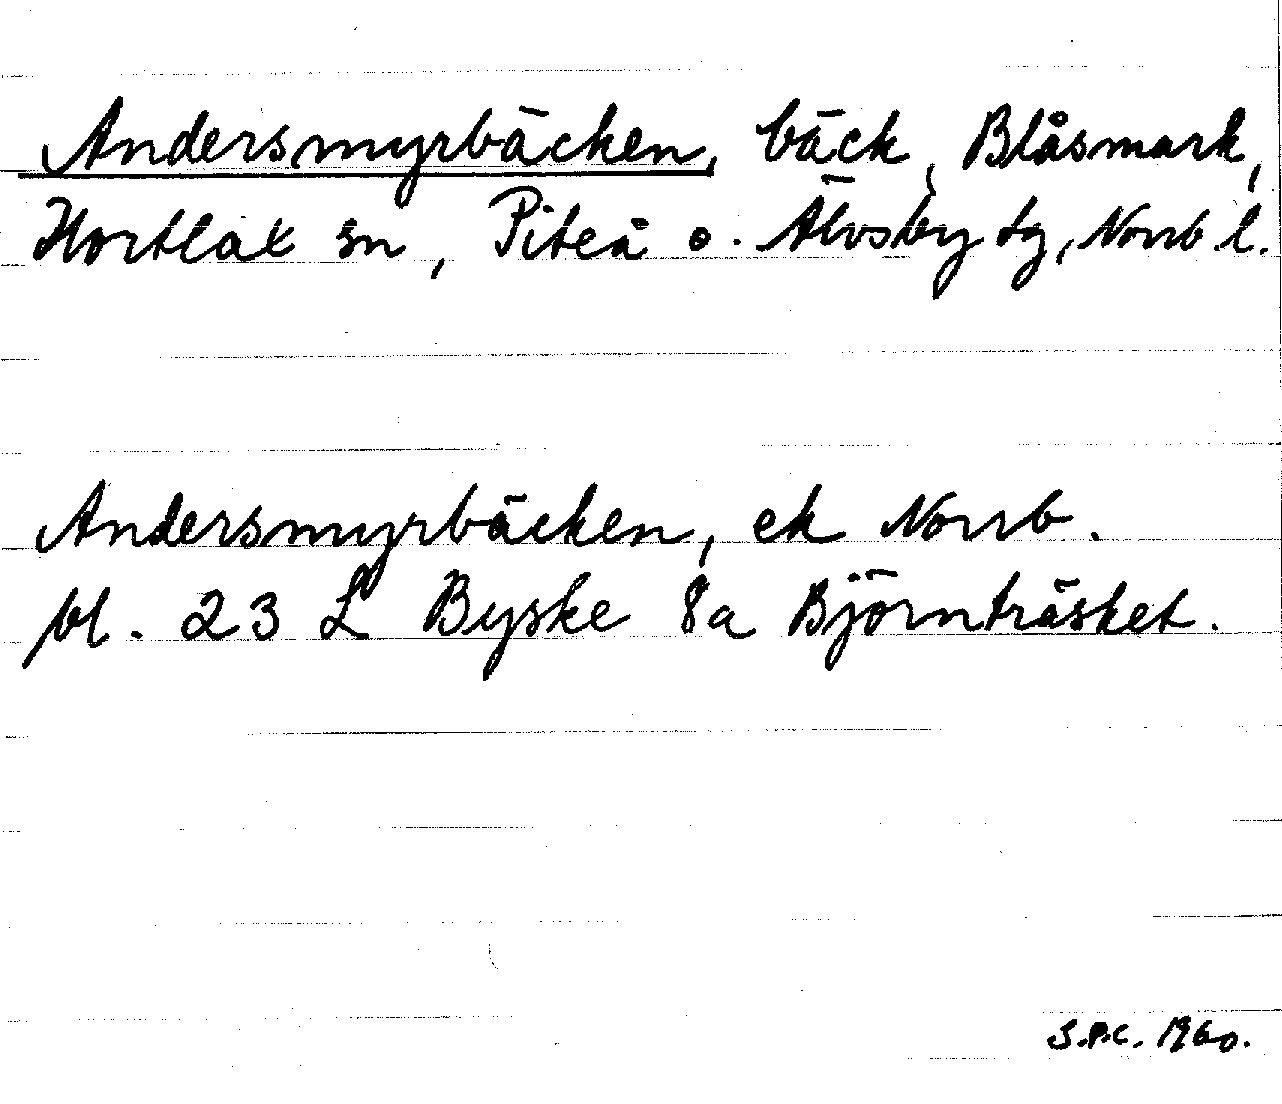 Andersmyrbäcken, bäck, Blåsmark,
Hortlax sn, Piteå o. Älvsby tg, Norrb l.
Andersmyrbäcken, ek Norrb.
bl. 23 L Byske 8a Björnträsket.
S.P.C. 1960.